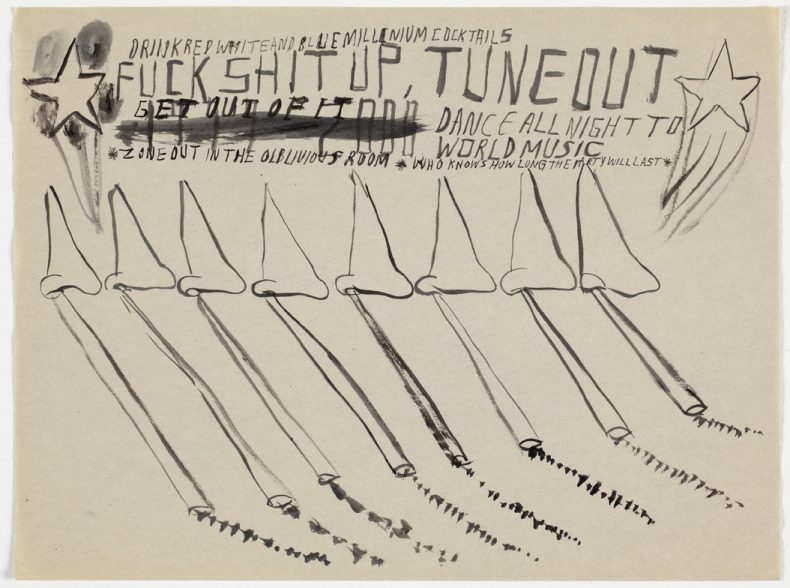 DRINK RED WHITE AND BLUE MILLENIUM COCKTAILS
FUCK SHIT UP, TUNE OUT
GET OUT OF IT
2000
DANCE ALL NIGHT TO
WORLD MUSIC
*ZONE OUT IN THE OLBLIVIOUS ROOM * WHO KNOWS HOW LONG THE PARTY WILL LAST *